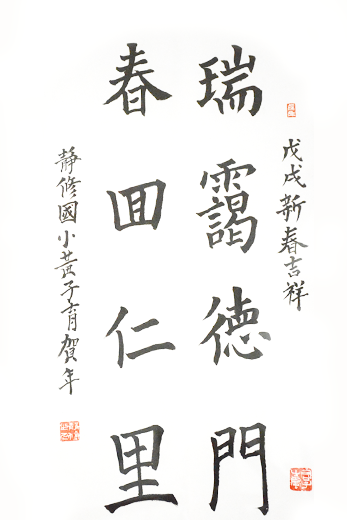 戊戌新春吉祥
瑞靄德門
春回仁里
靜修國小黃子育賀年